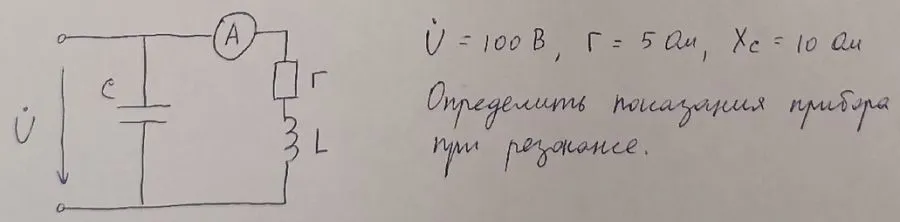 A
U̇ = 100 В, r = 5 Ом, Xc = 10 Ом
C
r
U̇
L
Определить показания прибора
при резонансе.